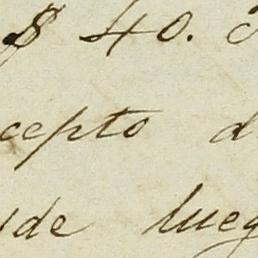 $ 40.
cepto d
de lueg